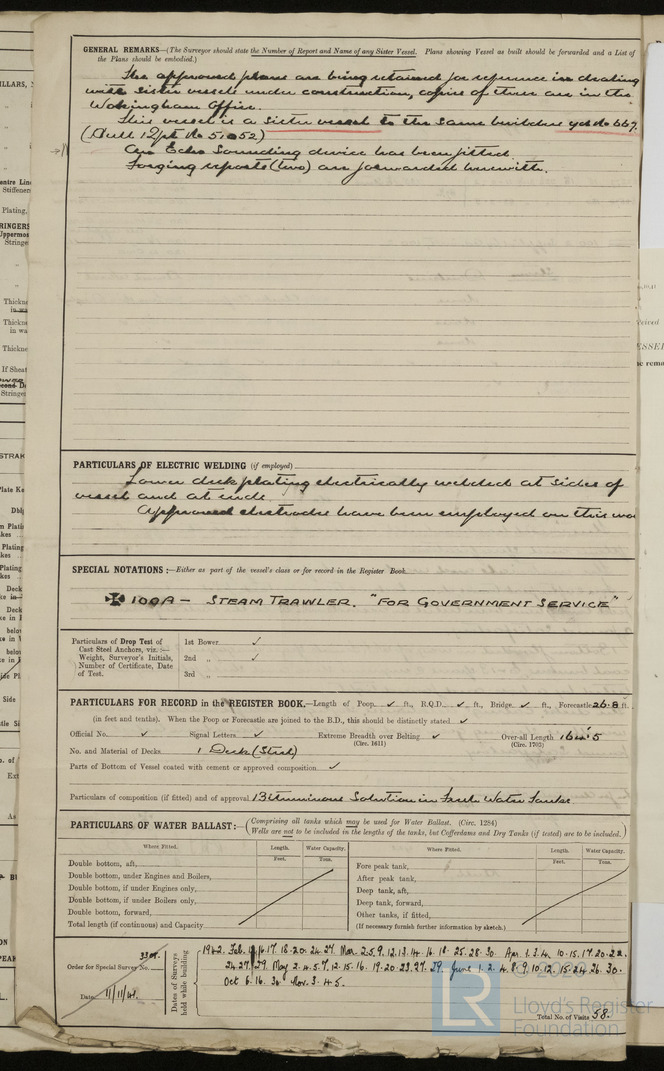 GENERAL REMARKS—(The Surveyor should state the Number of Report and Name of any Sister Vessel. Plans showing Vessel as built should be forwarded and a List of
the Plans should be embodied.)
The approved plans are being retained for reference in dealing
with sister vessels under construction, copies of these are in the
Wokingham Office.
This vessel is a sister vessel to the same builders yd No 667.
(Hull 12/pt No 51052)
An Echo Sounding device has been fitted.
Forging reports (two) are forwarded herewith.
PARTICULARS OF ELECTRIC WELDING (if employed)
Lower deck plating electrically welded at sides of
vessel and at ends.
Approved electrodes have been employed on this
SPECIAL NOTATIONS:—Either as part of the vessel's class or for record in the Register Book.
✠ 100A — STEAM TRAWLER. "FOR GOVERNMENT SERVICE"
Particulars of Drop Test of
Cast Steel Anchors, viz.:—
Weight, Surveyor's Initials,
Number of Certificate, Date
of Test.
1st Bower ✓
2nd „ ✓
3rd „
PARTICULARS FOR RECORD in the REGISTER BOOK.—Length of Poop, ✓ ft., R.Q.D. ✓ ft., Bridge ✓ ft., Forecastle 26.8 ft.
(in feet and tenths). When the Poop or Forecastle are joined to the B.D., this should be distinctly stated ✓
Official No. ✓ Signal Letters ✓ Extreme Breadth over Belting ✓ Over-all Length
(Circ. 1611) (Circ. 1703)
No. and Material of Decks 1 Deck (Steel)
Parts of Bottom of Vessel coated with cement or approved composition ✓
Particulars of composition (if fitted) and of approval Bituminous Solution in Fresh Water Tanks
PARTICULARS OF WATER BALLAST:—(Comprising all tanks which may be used for Water Ballast. (Circ. 1284)
Wells are not to be included in the lengths of the tanks, but Cofferdams and Dry Tanks (if tested) are to be included.)
Where Fitted. Length. Water Capacity. Where Fitted. Length. Water Capacity.
Feet. Tons. Feet. Tons.
Double bottom, aft,
Double bottom, under Engines and Boilers,
Double bottom, if under Engines only,
Double bottom, if under Boilers only,
Double bottom, forward,
Total length (if continuous) and Capacity
Fore peak tank,
After peak tank,
Deep tank, aft,
Deep tank, forward,
Other tanks, if fitted,
(If necessary furnish further information by sketch.)
Order for Special Survey No. 3301.
Date 11/11/41.
Dates of Surveys
held while building
1942. Feb. 16.17. 18.20.24.27. Mar. 2.5.9.12.13.14.16.18.25.28.30. Apr. 1.3.4.10.15.17.20.22.
24.27.29. May 2.4.5.7.12.15.16.19.20.23.27.29. June 1.2.4.8.9.10.12.15.24.26.30.
Oct 6.16.30. Nov. 3.4.5.
Total No. of Visits 58.
LR
Lloyd's Register
Foundation